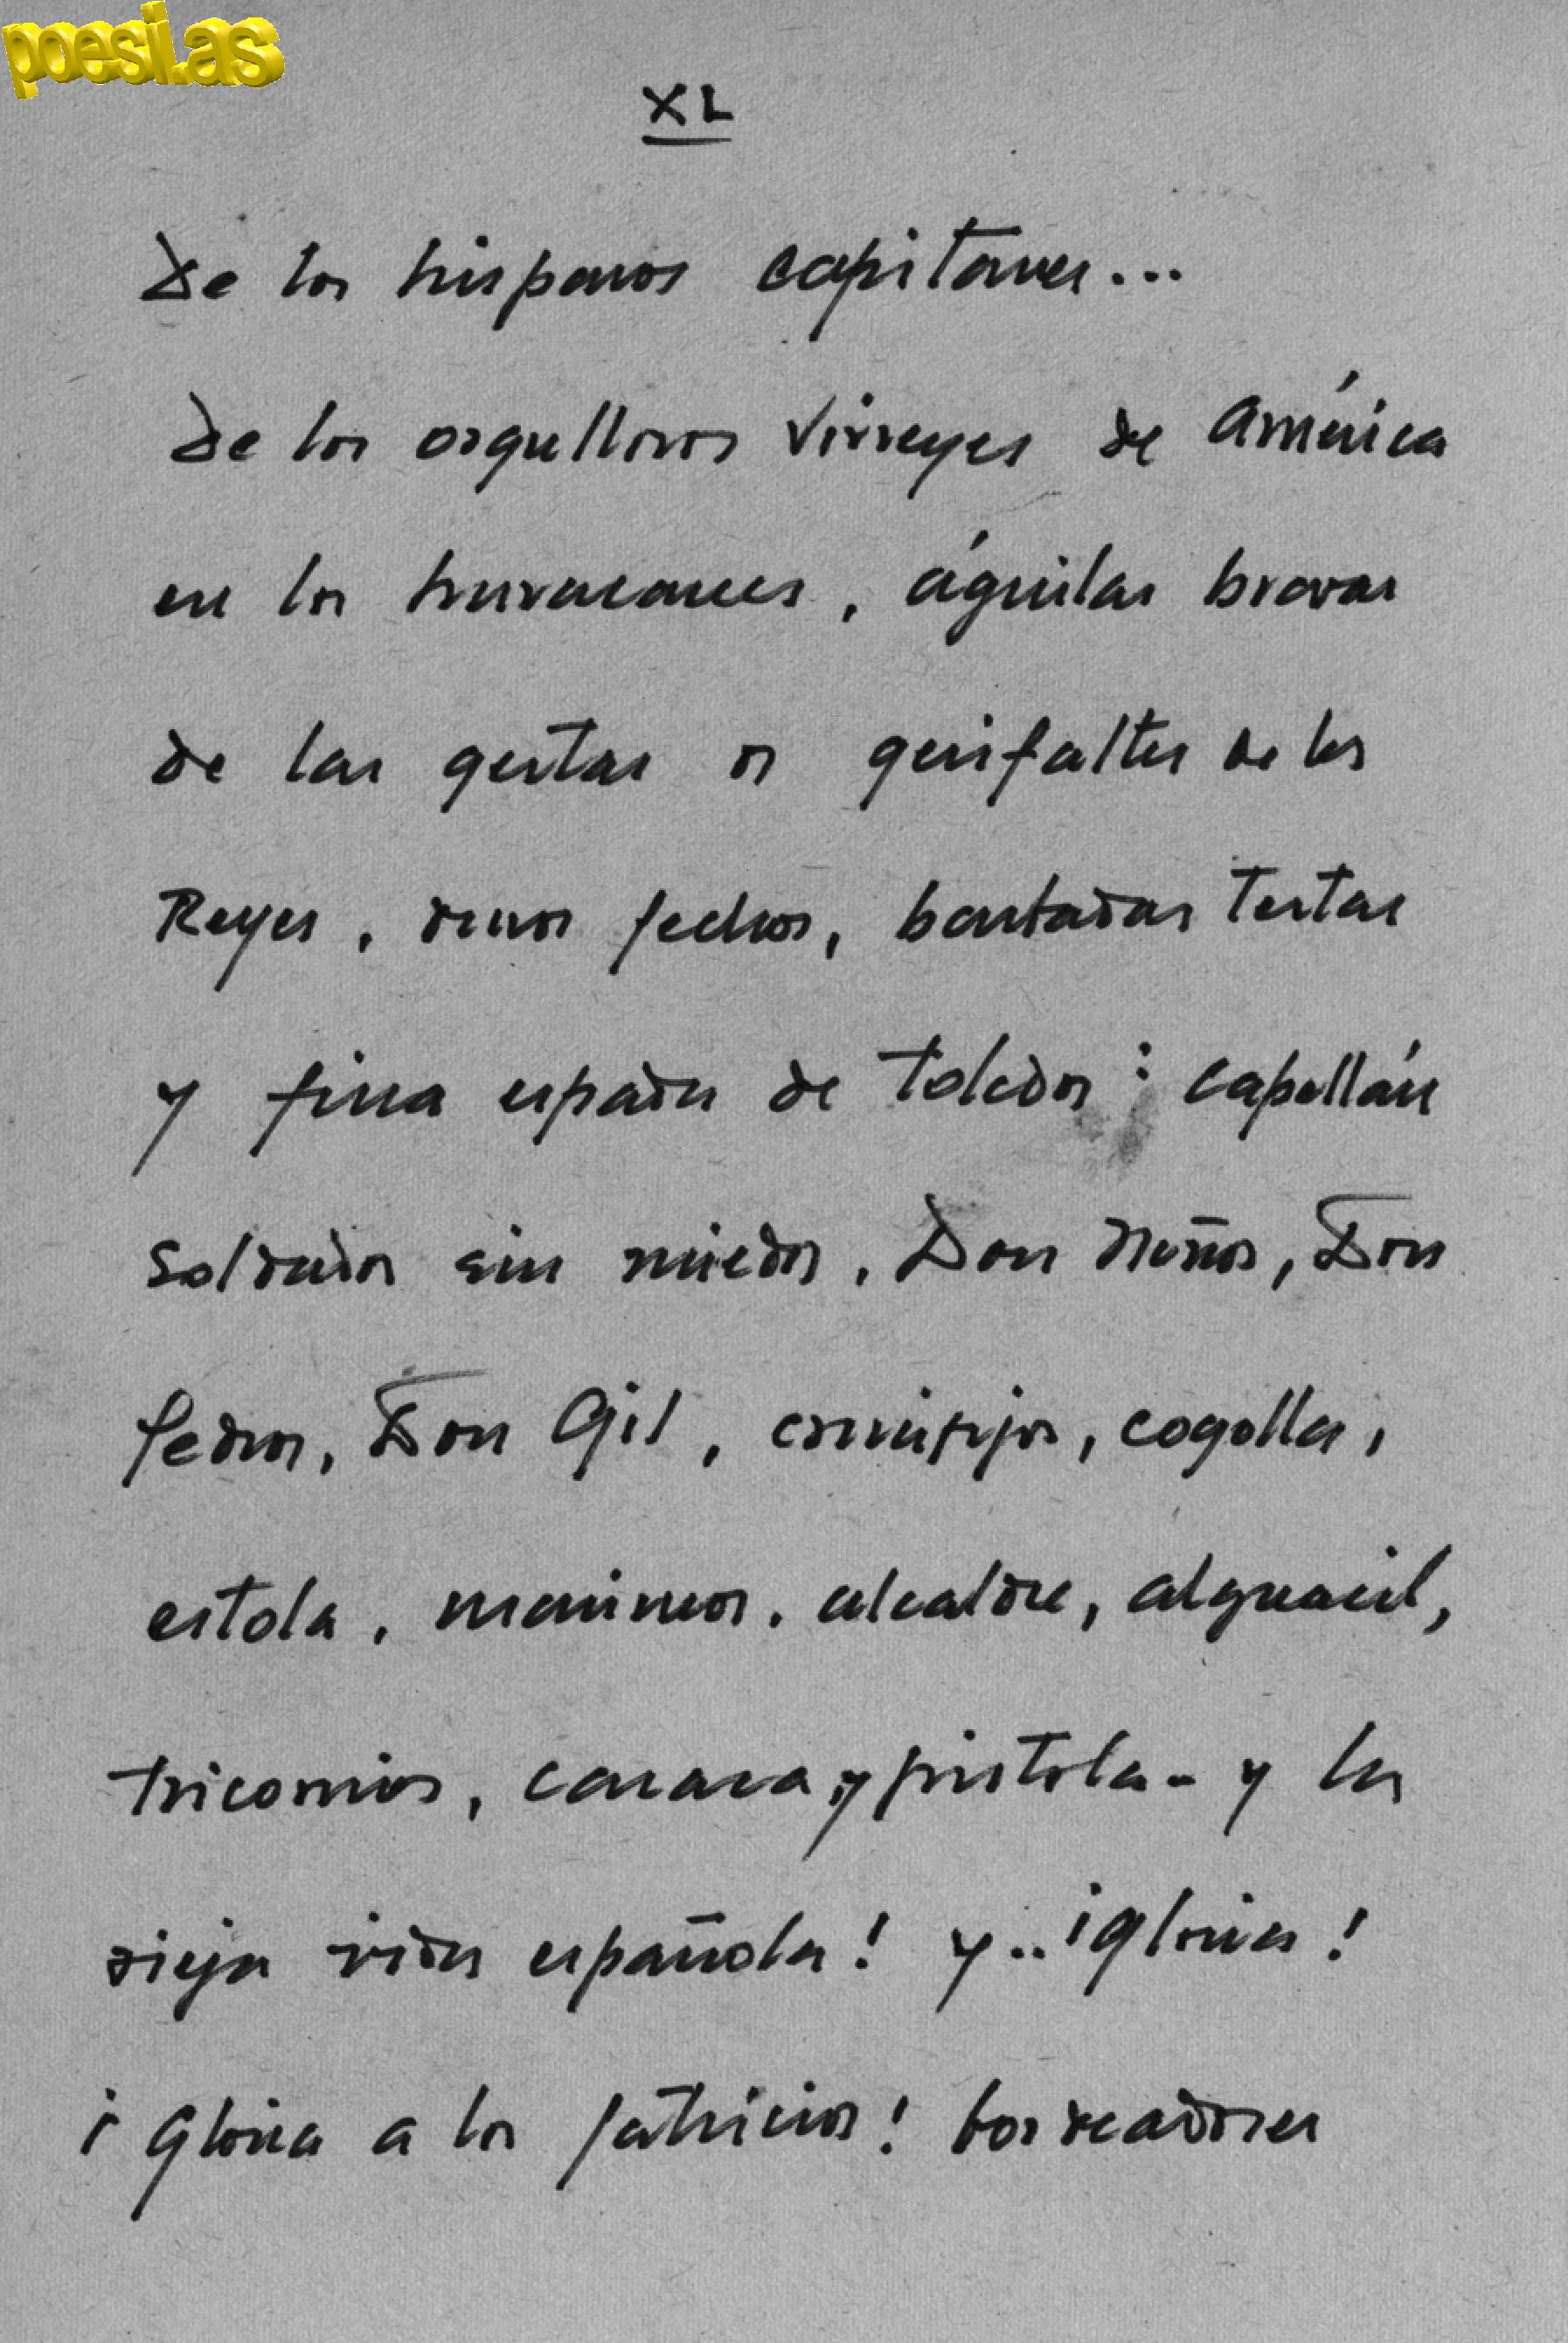 poesi.as
XL
De los hispanos capitanes...
De los orgullosos Virreyes de América
en los huracanes, águilas bravas
de las gestas o gerifaltes de los
Reyes, duros pechos, barbadas testas
y fina espada de Toledo: capellán
soldado sin miedo, Don Nuño, Don
Pedro, Don Gil, crucifijo, cogolla,
estola, marinero, alcalde, alguacil,
tricornio, casaca y pistola- y la
vieja vida española! y.. ¡gloria!
¡Gloria a los patricios! bordeadores